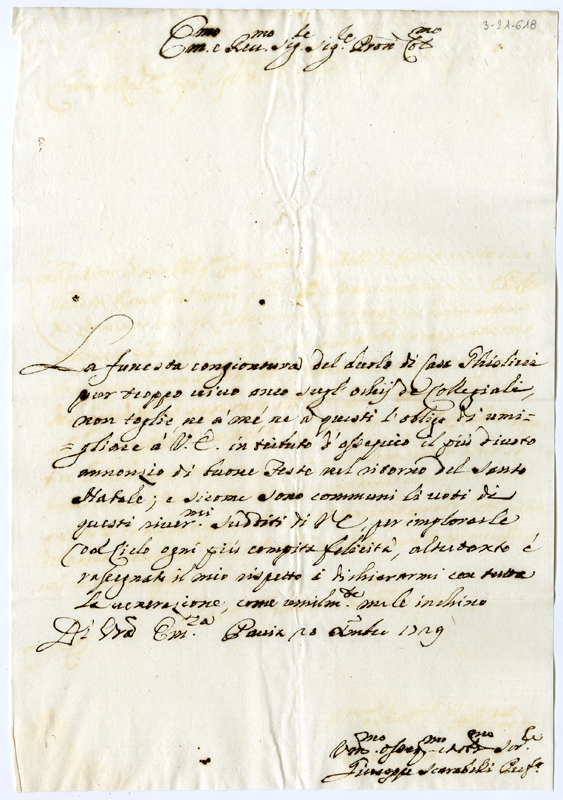 3-21-618
Em.mo e Rev.mo Sig.re Sig.re Pron Col.mo
La funesta congiontura del duolo di Casa Ghislieri
pur troppo vivo anco sugl'occhij de Collegiali,
non toglie, ne a mé ne a questi l'obligo di umi-
=gliare à V. E. in tributo d'ossequio il più divoto
annonzio di buone Feste nel ritorno del Santo
Natale; e sicome sono communi li voti di
questi river.mi Sudditi di VE, per implorarle
Dal Cielo ogni più compita felicità, altretanto é
rasegnato il mio rispetto à dichiararmi con tutta
la venerazione, come umilm.te me le inchino
Di Vra Em.za Pavia 20 Xmbre 1729
Um.mo Osseq.mo Ser.re
Giuseppe Scarabelli Pref.o